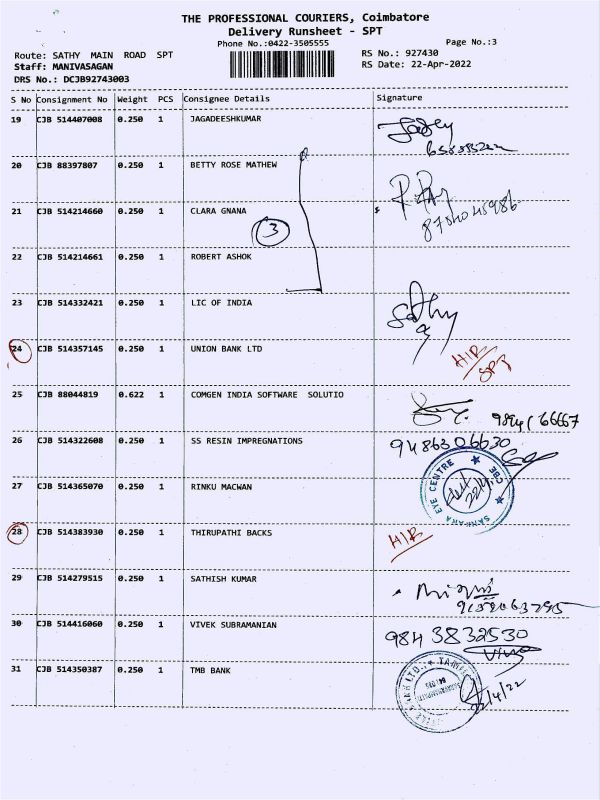 THE PROFESSIONAL COURIERS, Coimbatore
Delivery Runsheet - SPT
Phone No.:0422-3505555 Page No.:3
Route: SATHY MAIN ROAD SPT RS No.: 927430
Staff: MANIVASAGAN RS Date: 22-Apr-2022
DRS No.: DCJB92743003
S No Consignment No Weight PCS Consignee Details Signature
19 CJB 514407008 0.250 1 JAGADEESHKUMAR
20 CJB 88397807 0.250 1 BETTY ROSE MATHEW
21 CJB 514214660 0.250 1 CLARA GNANA
3
22 CJB 514214661 0.250 1 ROBERT ASHOK
23 CJB 514332421 0.250 1 LIC OF INDIA Sathy
24 CJB 514357145 0.250 1 UNION BANK LTD
SPT
25 CJB 88044819 0.622 1 COMGEN INDIA SOFTWARE SOLUTIO
26 CJB 514322608 0.250 1 SS RESIN IMPREGNATIONS 9486306630
SANKARA EYE CENTRE ★ CBE ★
27 CJB 514365070 0.250 1 RINKU MACWAN
28 CJB 514383930 0.250 1 THIRUPATHI BACKS
29 CJB 514279515 0.250 1 SATHISH KUMAR
30 CJB 514416060 0.250 1 VIVEK SUBRAMANIAN 9843832530
31 CJB 514350387 0.250 1 TMB BANK